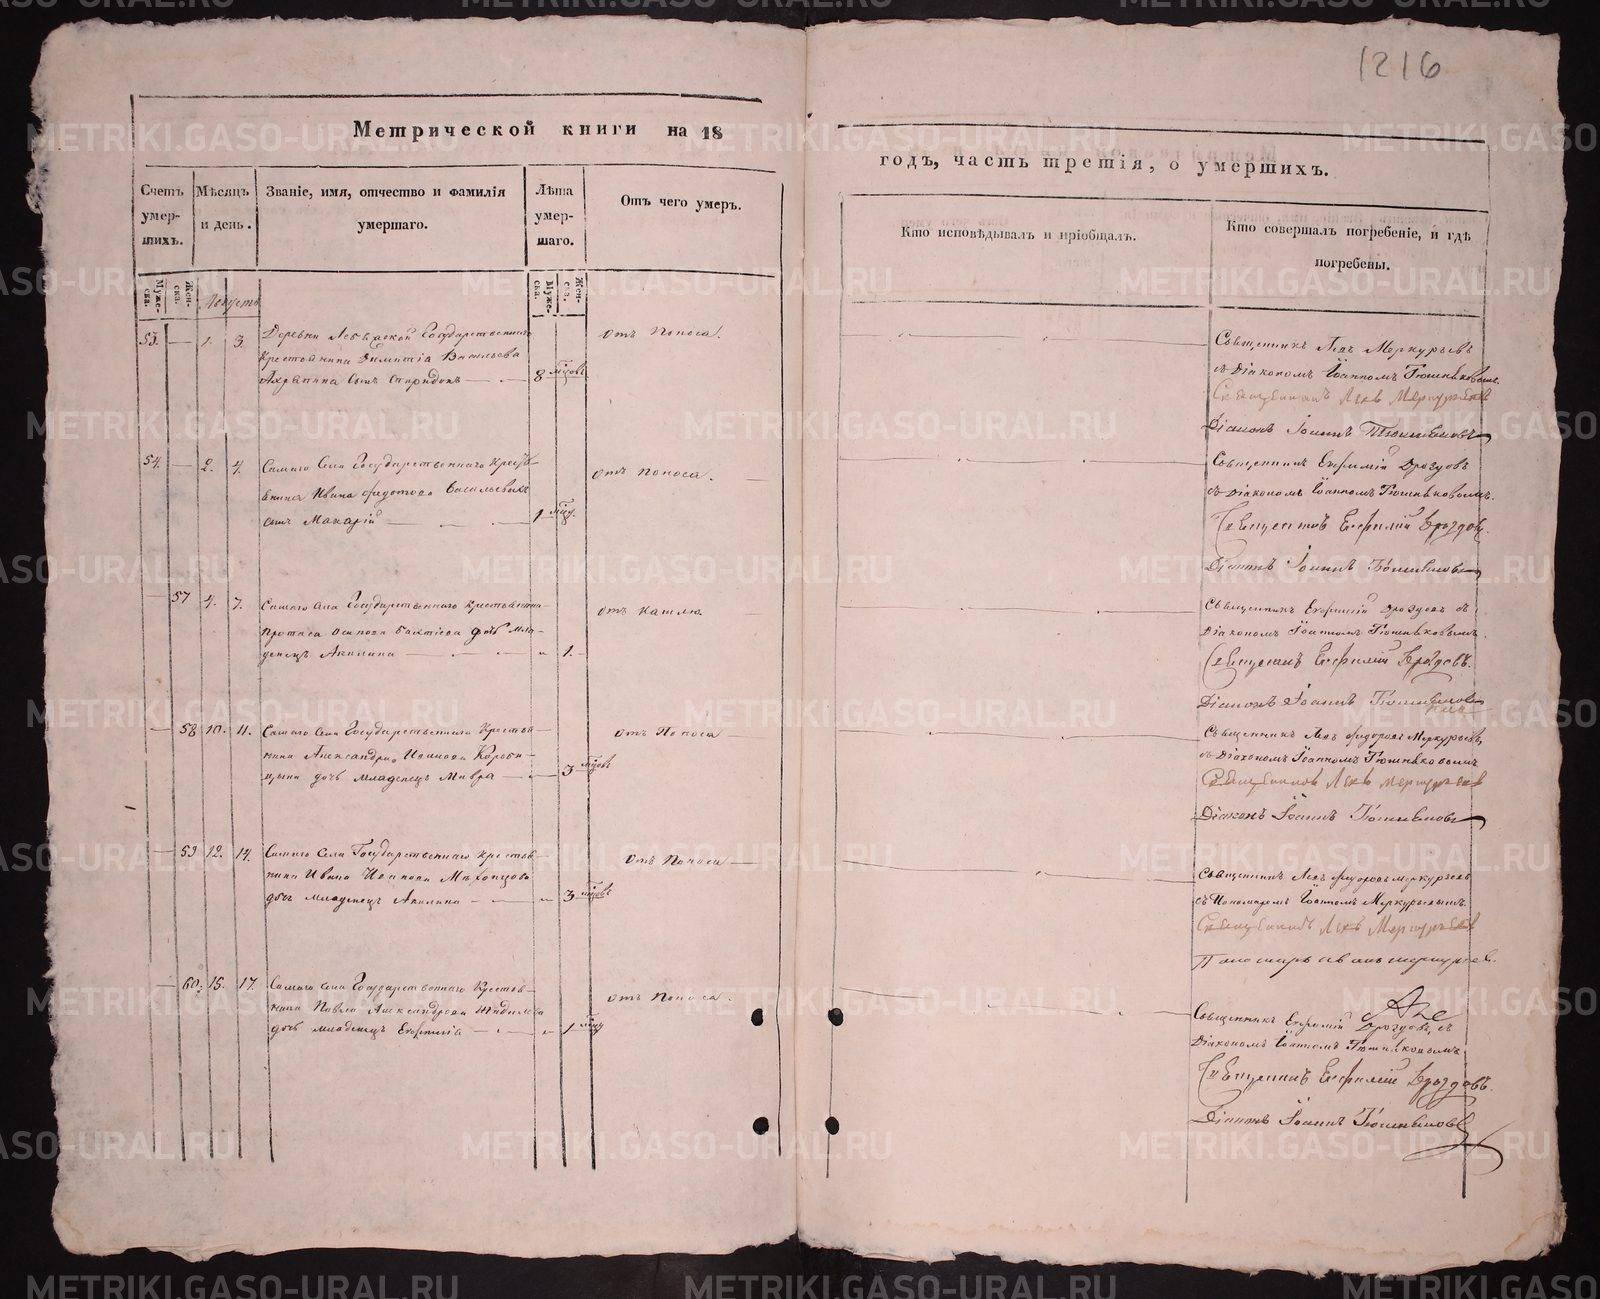 1216
Метрической книги на 18
годъ, часть третія, о умершихъ.
Счетъ умер-шихъ.
Мѣсяцъ и день.
Званіе, имя, отчество и фамилія
умершаго.
Лѣта умер-шаго.
Отъ чего умеръ.
Кто исповѣдывалъ и пріобщалъ.
Кто совершалъ погребеніе, и гдѣ
погребены.
Муже-ска.
Жен-ска.
Муже-ска.
Жен-ска.
53. 1. 3.
Деревни Государственнаго
Крестьянина Димитрія Васильева
сынъ Спиридонъ
8 мѣсяц
отъ Поноса.
Священникъ Левъ Меркурьевъ
съ Діакономъ Іоанномъ Тюшняковымъ.
Священникъ Левъ Меркурьевъ
Діаконъ Іоаннъ Тюшняковъ
54. 2. 4.
Самаго Села Государственнаго Крестья-
нина Ивана Федотова Васильевыхъ
сынъ Макарій
1 мѣсяц
отъ Поноса.
Священникъ Евфимій Дроздовъ
съ Діакономъ Іоанномъ Тюшняковымъ.
Священникъ Евфимій Дроздовъ.
Діаконъ Іоаннъ Тюшняковъ
57 4. 7.
Самаго Села Государственнаго крестьянина
Протаса Осипова дочь мла-
денецъ Акилина
1.
отъ Кашлю
Священникъ Евфимій Дроздовъ съ
Діакономъ Іоанномъ Тюшняковымъ.
Священникъ Евфимій Дроздовъ.
Діаконъ Іоаннъ Тюшняковъ
58 10. 11.
Самаго Села Государственнаго Крестья-
нина Александра Иванова Короби-
цына дочь младенецъ Мавра
3 мѣсяц
отъ Поноса
Священникъ Левъ Федоровъ Меркурьевъ
съ Діакономъ Іоанномъ Тюшняковымъ
Священникъ Левъ Меркурьевъ
Діаконъ Іоаннъ Тюшняковъ
59 12. 14.
Самаго Села Государственнаго крестья-
нина Ивана Иванова
дочь младенецъ Акилина
3 мѣсяц
отъ Поноса
Священникъ Левъ Федоровъ Меркурьевъ
съ Пономаремъ Іоанномъ Меркурьевымъ.
Священникъ Левъ Меркурьевъ
Пономарь Меркурьев.
60. 15. 17.
Самаго Села Государственнаго Крестья-
нина Павла Александрова
дочь младенецъ Евфимія
1 мѣсяц
отъ Поноса.
Священникъ Евфимій Дроздовъ, съ
Діакономъ Іоанномъ Тюшняковымъ.
Священникъ Евфимій Дроздовъ.
Діаконъ Іоаннъ Тюшняковъ
METRIKI.GASO-URAL.RU